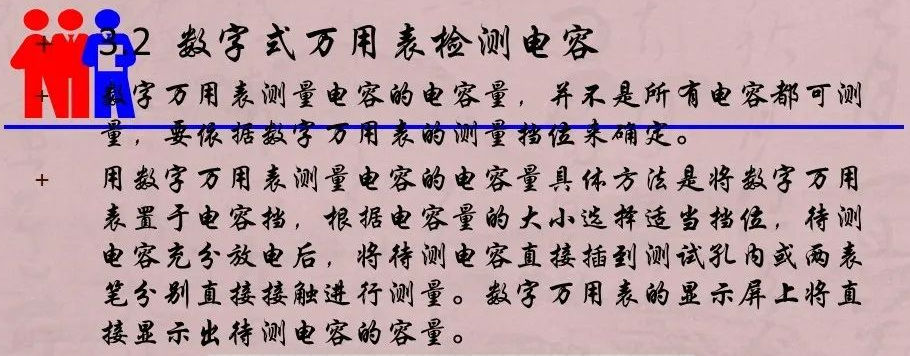 + 3.2 数字式万用表检测电容
+ 数字万用表测量电容的电容量，并不是所有电容都可测
量，要依据数字万用表的测量挡位来确定。
+ 用数字万用表测量电容的电容量具体方法是将数字万用
表置于电容挡，根据电容量的大小选择适当挡位，待测
电容充分放电后，将待测电容直接插到测试孔内或两表
笔分别直接接触进行测量。数字万用表的显示屏上将直
接显示出待测电容的容量。